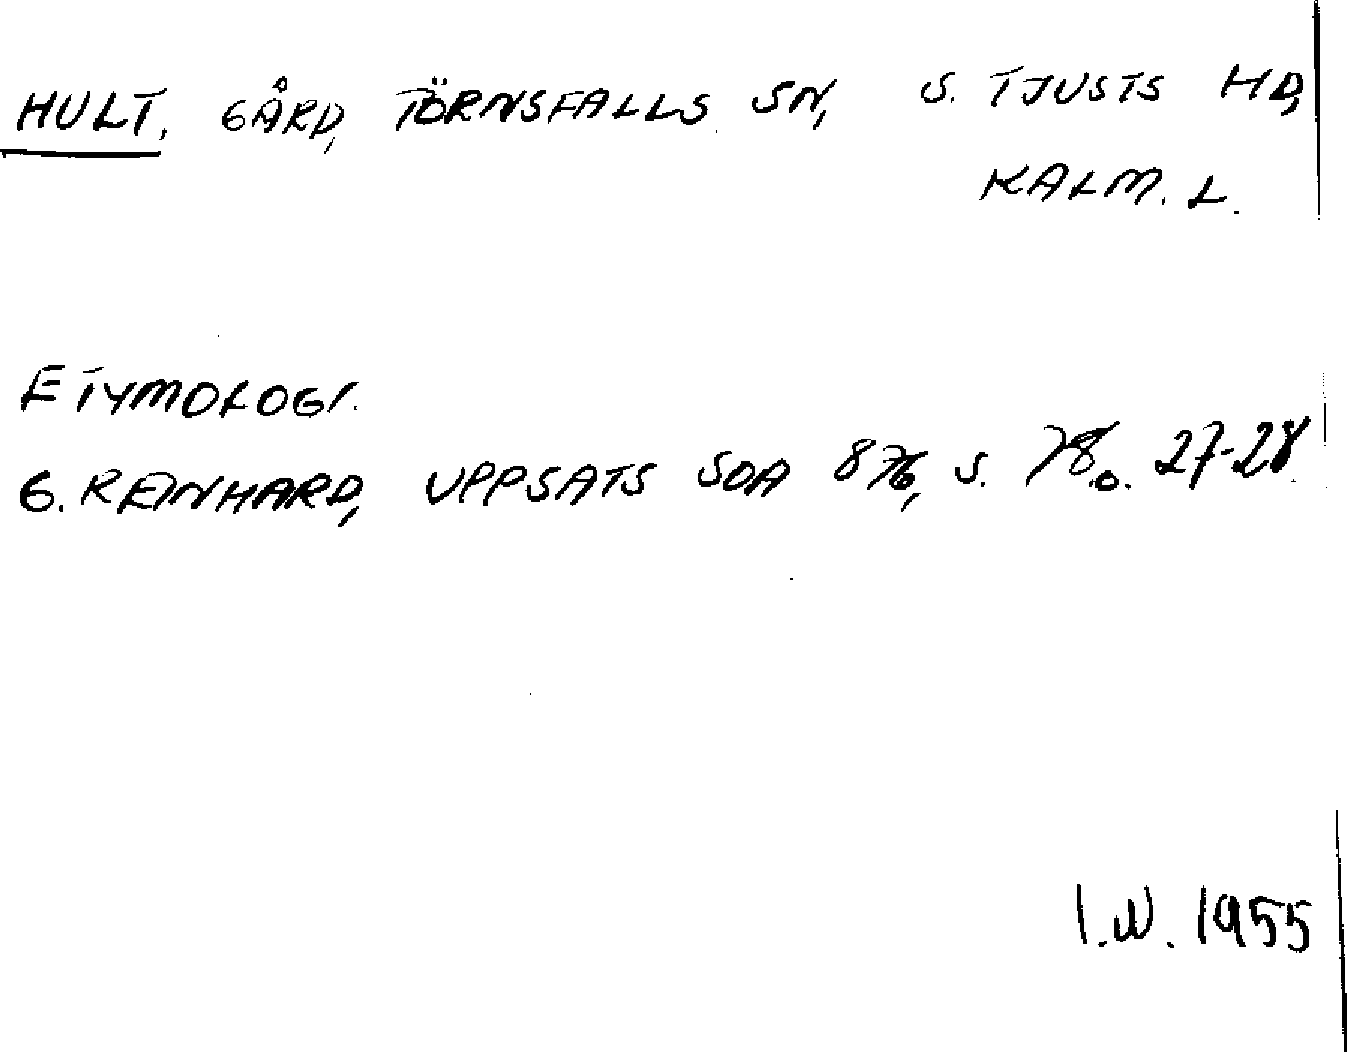 HULT, GÅRD, TÖRNSFALLS SN, S. TJUSTS HD,
KALM. L.
ETYMOLOGI.
G. REINHARD, UPPSATS SOA 876, S. 27-28.
I.W. 1955